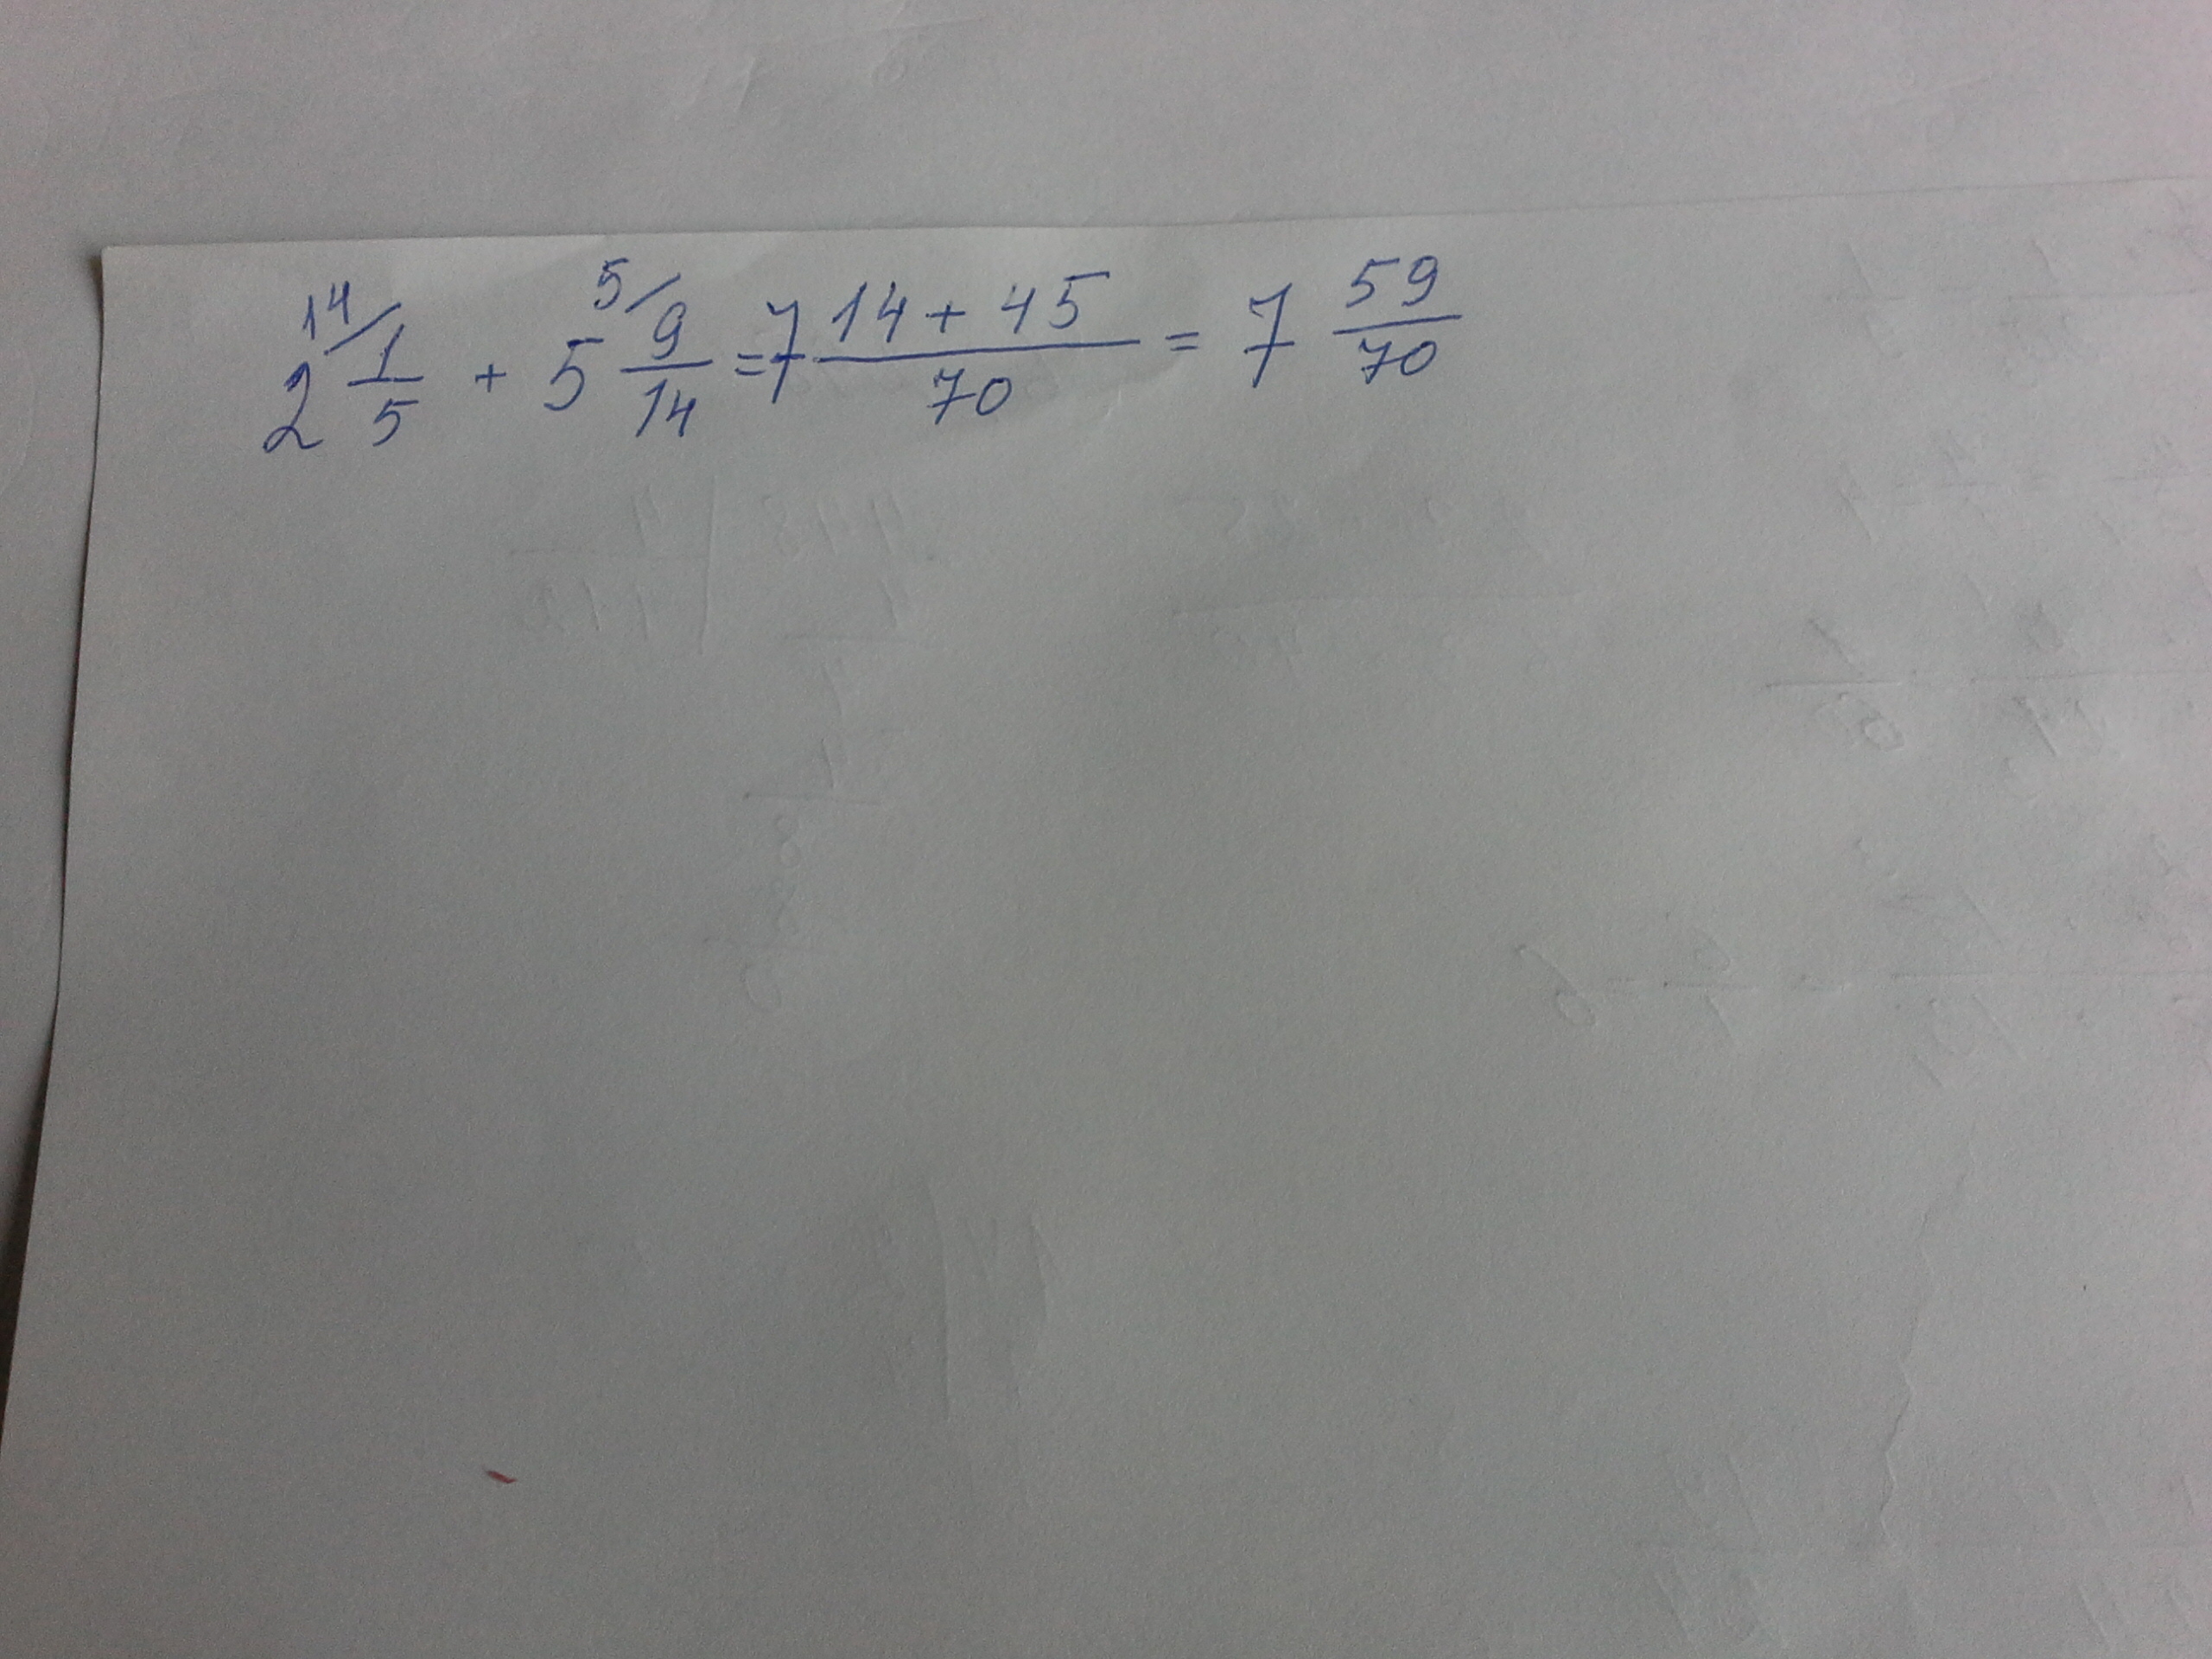 2 ^{14/} \frac{1}{5} + 5 ^{5/} \frac{9}{14} = 7 \frac{14 + 45}{70} = 7 \frac{59}{70}